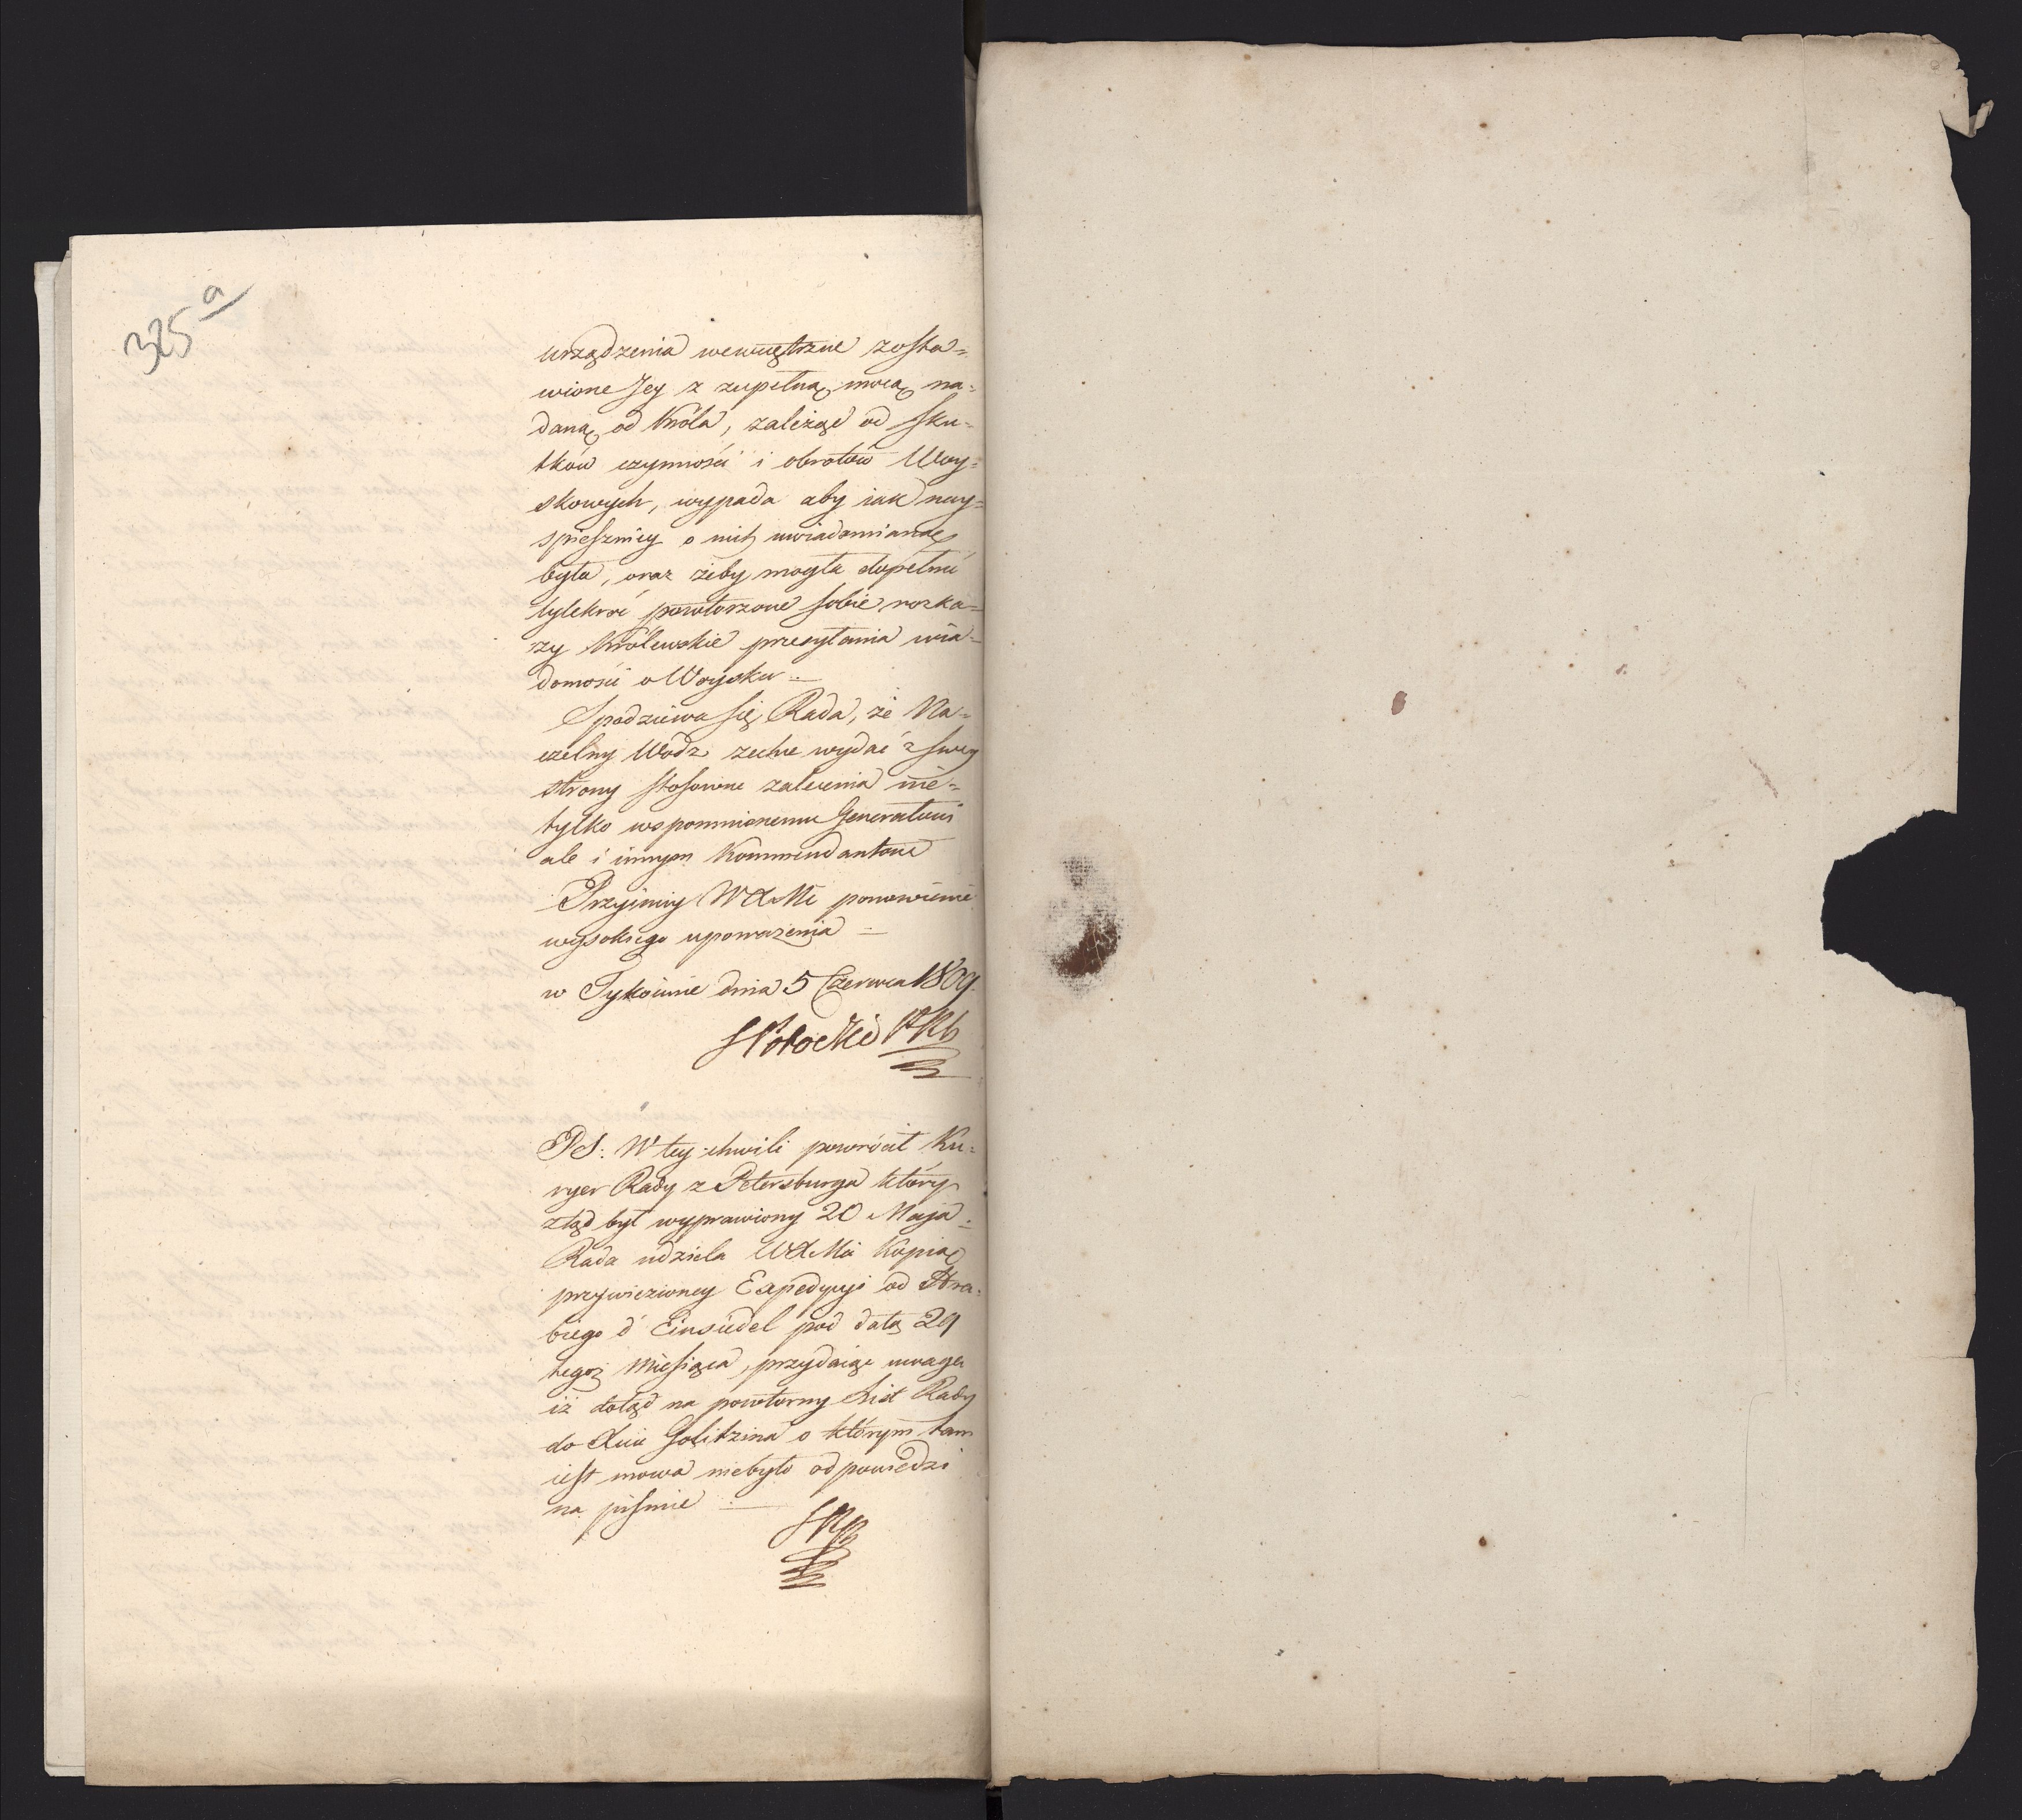 325 a
urządzenia wewnętrzne zosta=
wione Jey z zupełną mocą na=
daną od Króla, zależąc od sku=
tków czynności i obrotów Woy=
skowych, wypada aby iak nay=
spieszniey o nich uwiadomianą
była, oraz żeby mogła dopełnić
tylekroć powtorzone sobie rozka=
zy Królewskie przesyłania wia=
domości o Woysku
Spodziewa się Rada, że Na=
czelny Wódz zechce wydać z swey
strony stosowne zalecenia nie=
tylko wspomnionemu Generałowi
ale i innym Kommendantom
Przyimiy WXMć ponowienie
wysokiego upoważenia
w Tykocinie dnia 5 Czerwca 1809
SPotocki
PS: W tey chwili powrócił Ku=
ryer Rady z Petersburga który
ztąd był wyprawiony 20 Maja
Rada udziela WXMci Kopią
przywiezioney Expedycyi od Hra=
biego d'Einsiedel pod datą 29
tegoż Miesiąca, przydaiąc uwagę
iż dotąd na powtorny List Rady
do Xcia Golitzina o którym tam
iest mowa niebyło odpowiedzi
na piśmie